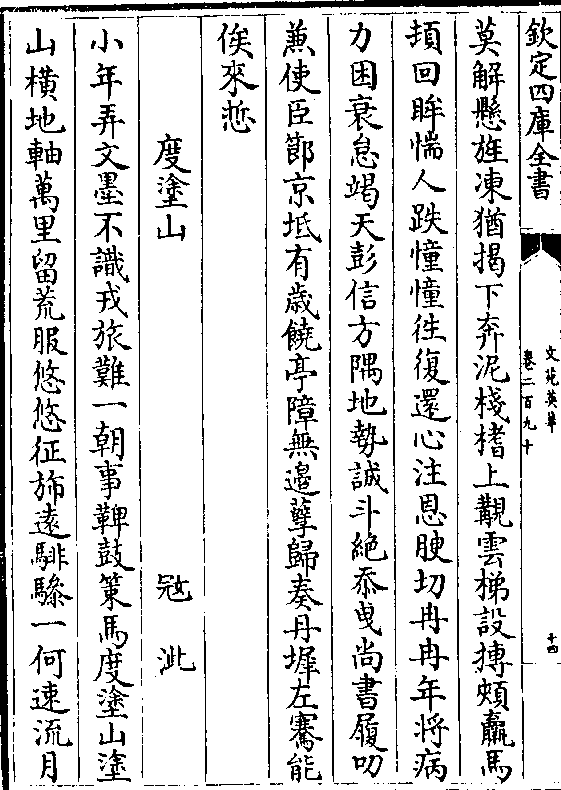 欽定四庫全書
文苑英華
卷二百九十
十四
莫解懸旌凍猶揭下奔泥棧榰上覯雲梯設摶頰羸馬
頓回眸惴人跌憧憧徃復還心注恩腴切冉冉年將病
力困衰怠竭天彭信方隅地勢誠斗絶忝曵尚書履叨
兼使臣節京坻有歳饒亭障無邉孽歸奏丹墀左騫能
俟來悊
度塗山
冦泚
小年弄文墨不識戎旅難一朝事鞞鼓策馬度塗山塗
山横地軸萬里留荒服悠悠征斾遠騑驂一何速流月